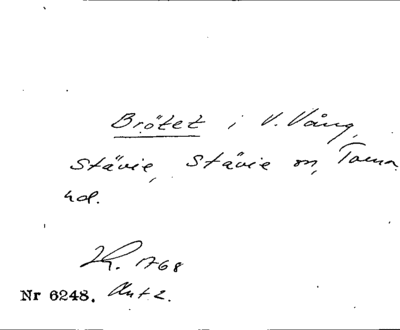 Brötet i V. Vång,
Stävie, Stävie sn, Torna
hd.
Kt. 1768
Nr 6248. Akt 2.